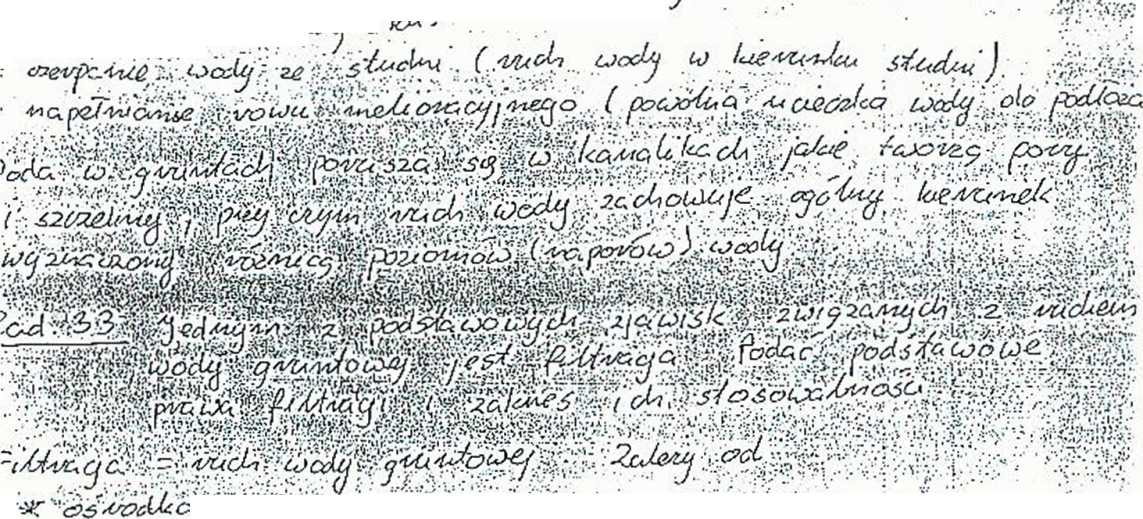 - czerpanie wody ze studni (ruch wody w kierunku studni)
- napełnianie rowu melioracyjnego (powolna ucieczka wody do podłoża
Woda w gruntach porusza się w kanalikach jakie tworzą pory
i szczeliny, przy czym ruch wody zachowuje ogólny kierunek
wyznaczony różnicą poziomów (naporów) wody
Zad. 33 Jednym z podstawowych zjawisk związanych z ruchem
wody gruntowej jest filtracja. Podać podstawowe
prawa filtracji i zakres ich stosowalności
Filtracja = ruch wody gruntowej. Zależy od
* ośrodka